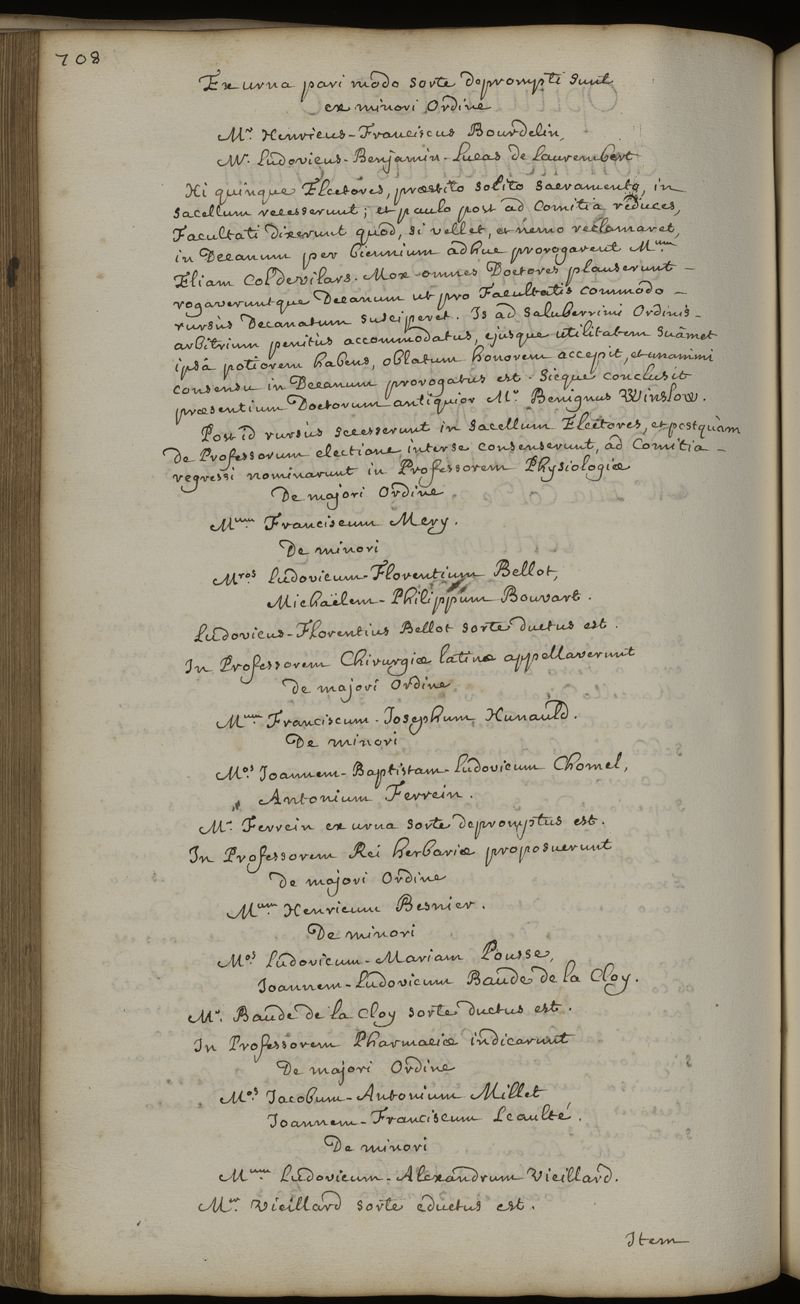 708
Ex urna pari modo sorte deprompti sunt
ex minori Ordine
Mr. Henricus-Franciscus Bourdelin,
Mr. Ludovicus-Benjamin-Lucas de Laurembert
Hi quinque Electores, præstito solito sacramento, in
sacellum recesserunt; et paulo post ad Comitia reduces,
Facultati dixerunt quod, si vellet, et nemo reclamaret,
in Decanum per biennium adhuc prorogarent Mum
Eliam Col devilars. Mox omnes Doctores plauserunt –
rogaveruntque Decanum ut pro Facultatis commodo –
rursùs Decanatum susciperet. Is ad saluberrimi Ordinis –
arbitrium penitùs accommodatus, ejusque utilitatem suâmet
ipsâ potiorem habens, oblatum honorem accepit, et unanimi
consensu in Decanum prorogatus est. Sicque conclusit
præsentium Doctorum antiquior Mr. Benignus Winslow.
Post id rursùs secesserunt in sacellum Electores, et postquàm
de Professorum electione inter se consenserunt, ad Comitia –
regressi nominarunt in Professorem Physiologiæ
De majori Ordine
Mum Franciscum Mery.
De minori
Mros Ludovicum-Florentium Bellot,
Michaëlem-Philippum Bouvart.
Ludovicus-Florentius Bellot sorte ductus est.
In Professorem Chirurgiæ latinæ appellaverunt
de majori Ordine
Mum Franciscum-Josephum Hunauld.
De minori
Mos Joannem-Baptistam-Ludovicum Chomel,
Antonium Ferrein.
Mr. Ferrein ex urna sorte depromptus est.
In Professorem Rei herbariæ proposuerunt
de majori Ordine
Mum Henricum Besnier.
De minori
Mos Ludovicum-Mariam Pousse,
Joannem-Ludovicum Baude de la Cloy.
Mr. Baude de la Cloy sorte ductus est.
In Professorem Pharmaciæ indicarunt
De majori Ordine
Mos Jacobum-Antonium Millet
Joannem-Franciscum Leaulté.
De minori
Mum Ludovicum-Alexandrum Vieillard.
Mr Vieillard sorte eductus est.
Item